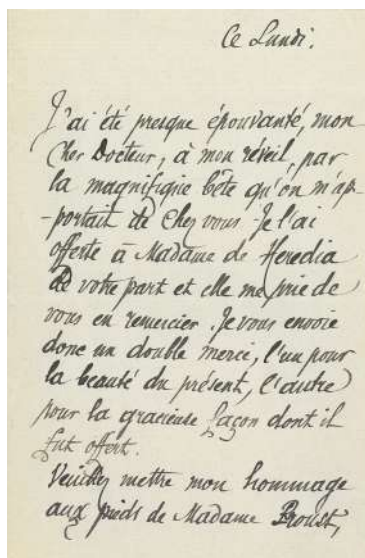 Ce Lundi.
J'ai été presque épouvanté, mon
Cher Docteur, à mon réveil, par
la magnifique bête qu'on m'ap-
-portait de chez vous. Je l'ai
offerte à Madame de Heredia
de votre part et elle me prie de
vous en remercier. Je vous envoie
donc un double merci, l'un pour
la beauté du présent, l'autre
pour la gracieuse façon dont il
fut offert.
Veuillez mettre mon hommage
aux pieds de Madame Proust,